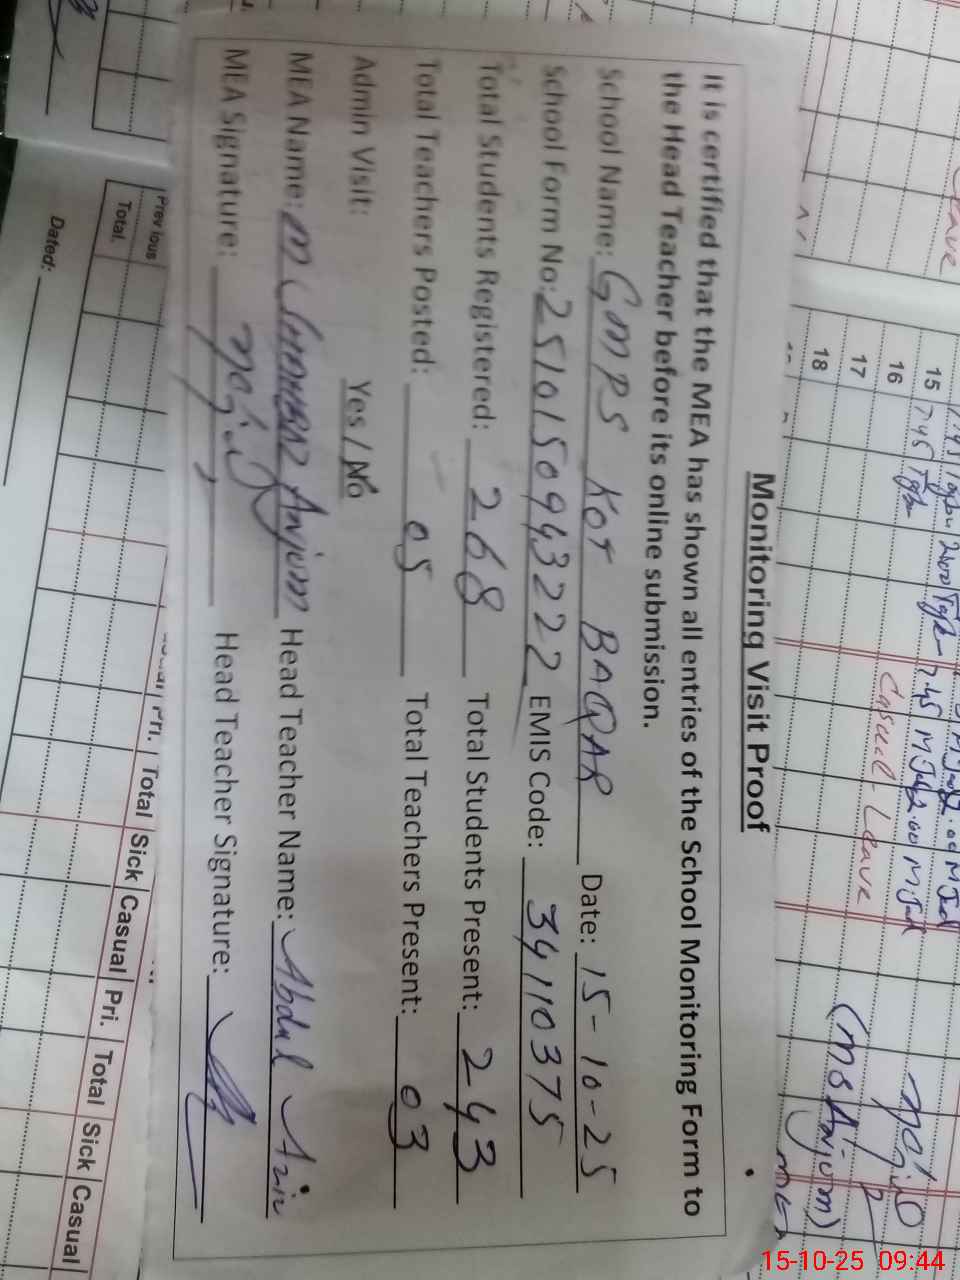 Monitoring Visit Proof
It is certified that the MEA has shown all entries of the School Monitoring Form to
the Head Teacher before its online submission.
School Name: GMPS KOT BAQAR Date: 15-10-25
School Form No: 2510150943222 EMIS Code: 34110375
Total Students Registered: 268 Total Students Present: 243
Total Teachers Posted: 05 Total Teachers Present: 03
Admin Visit: Yes / No
MEA Name: M Anjum Head Teacher Name: Abdul Aziz
MEA Signature: Head Teacher Signature:
15 7:45
16 Casual Leave
17
18
Previous
Total.
Dated:
Pri. Total Sick Casual Pri. Total Sick Casual
15-10-25 09:44